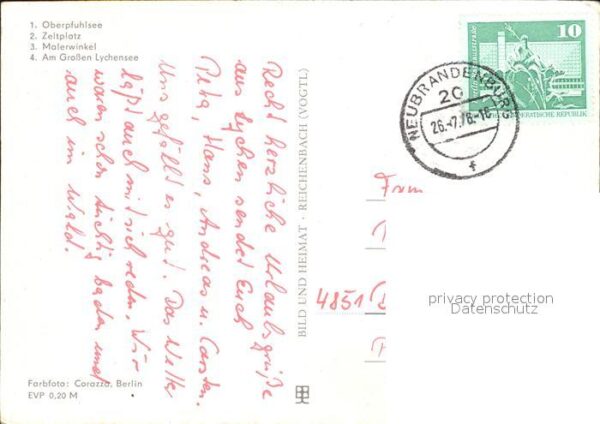 1. Oberpfuhlsee
2. Zeltplatz
3. Malerwinkel
4. Am Großen Lychensee
Recht herzliche Urlaubsgrüße
aus Lychen sendet Euch
Petra, Hans, Andreas u. Carsten.
Uns gefällt es gut. Das Wetter
läßt auch mit sich reden. Wir
waren schon tüchtig baden und
auch im Wald.
Farbfoto: Corazza, Berlin
EVP 0,20 M
BILD UND HEIMAT · REICHENBACH (VOGTL)
10
DEMOKRATISCHE REPUBLIK
NEUBRANDENBURG
20
26.-7.76-16
f
Frau
4851
privacy protection
Datenschutz